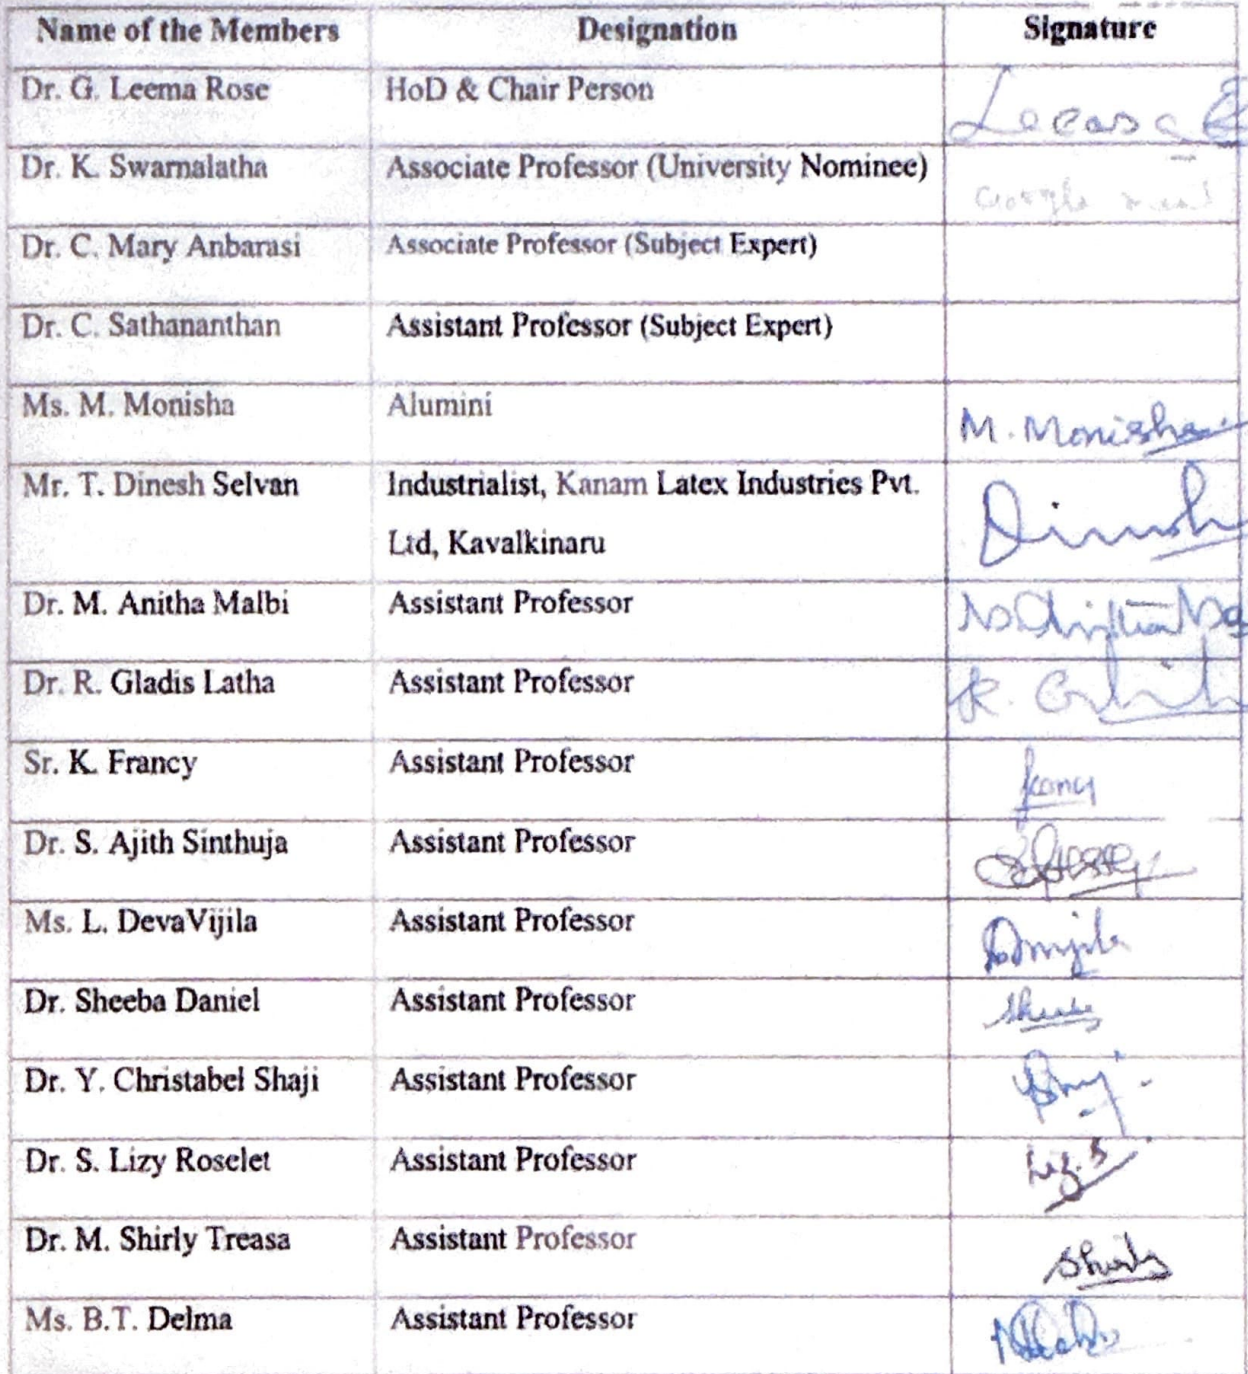 Name of the Members Designation Signature
Dr. G. Leema Rose HoD & Chair Person
Dr. K. Swarnalatha Associate Professor (University Nominee) Google meet
Dr. C. Mary Anbarasi Associate Professor (Subject Expert)
Dr. C. Sathananthan Assistant Professor (Subject Expert)
Ms. M. Monisha Alumini M. Monisha
Mr. T. Dinesh Selvan Industrialist, Kanam Latex Industries Pvt.
Ltd, Kavalkinaru
Dr. M. Anitha Malbi Assistant Professor
Dr. R. Gladis Latha Assistant Professor
Sr. K. Francy Assistant Professor
Dr. S. Ajith Sinthuja Assistant Professor
Ms. L. DevaVijila Assistant Professor
Dr. Sheeba Daniel Assistant Professor
Dr. Y. Christabel Shaji Assistant Professor
Dr. S. Lizy Roselet Assistant Professor
Dr. M. Shirly Treasa Assistant Professor
Ms. B.T. Delma Assistant Professor